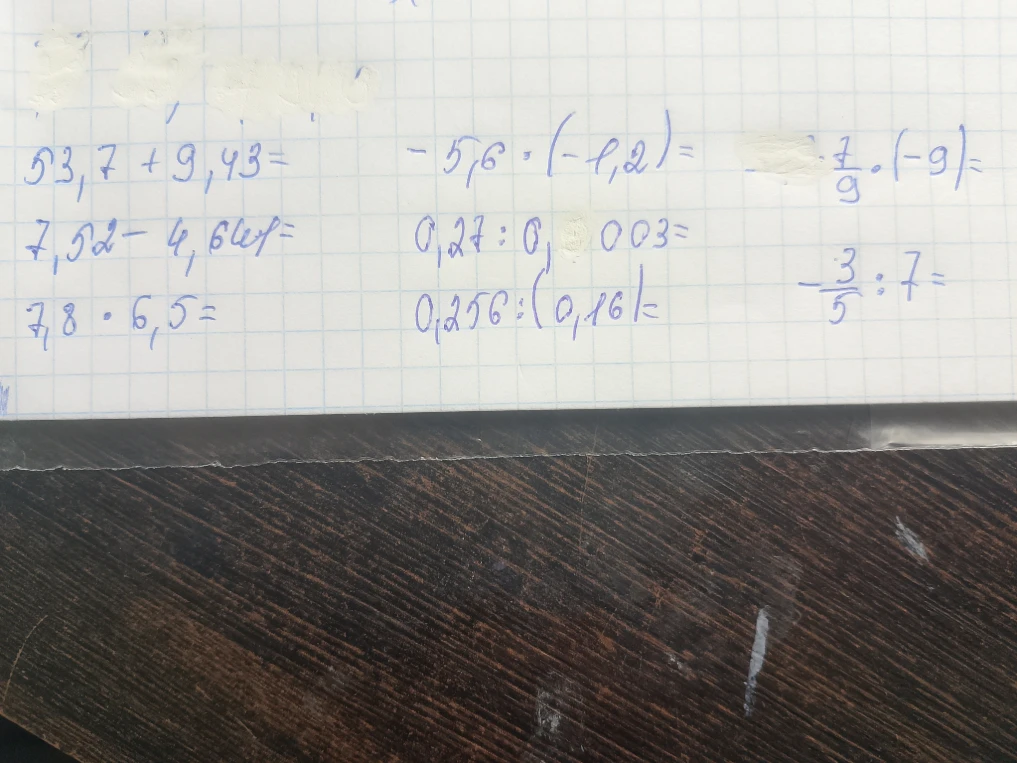 53,7 + 9,43=
7,52 - 4,641=
7,8 · 6,5=
- 5,6 · (-1,2)=
0,27 : 0, 003=
0,256:(0,16)=
- 7/9 · (-9)=
- 3/5 : 7=